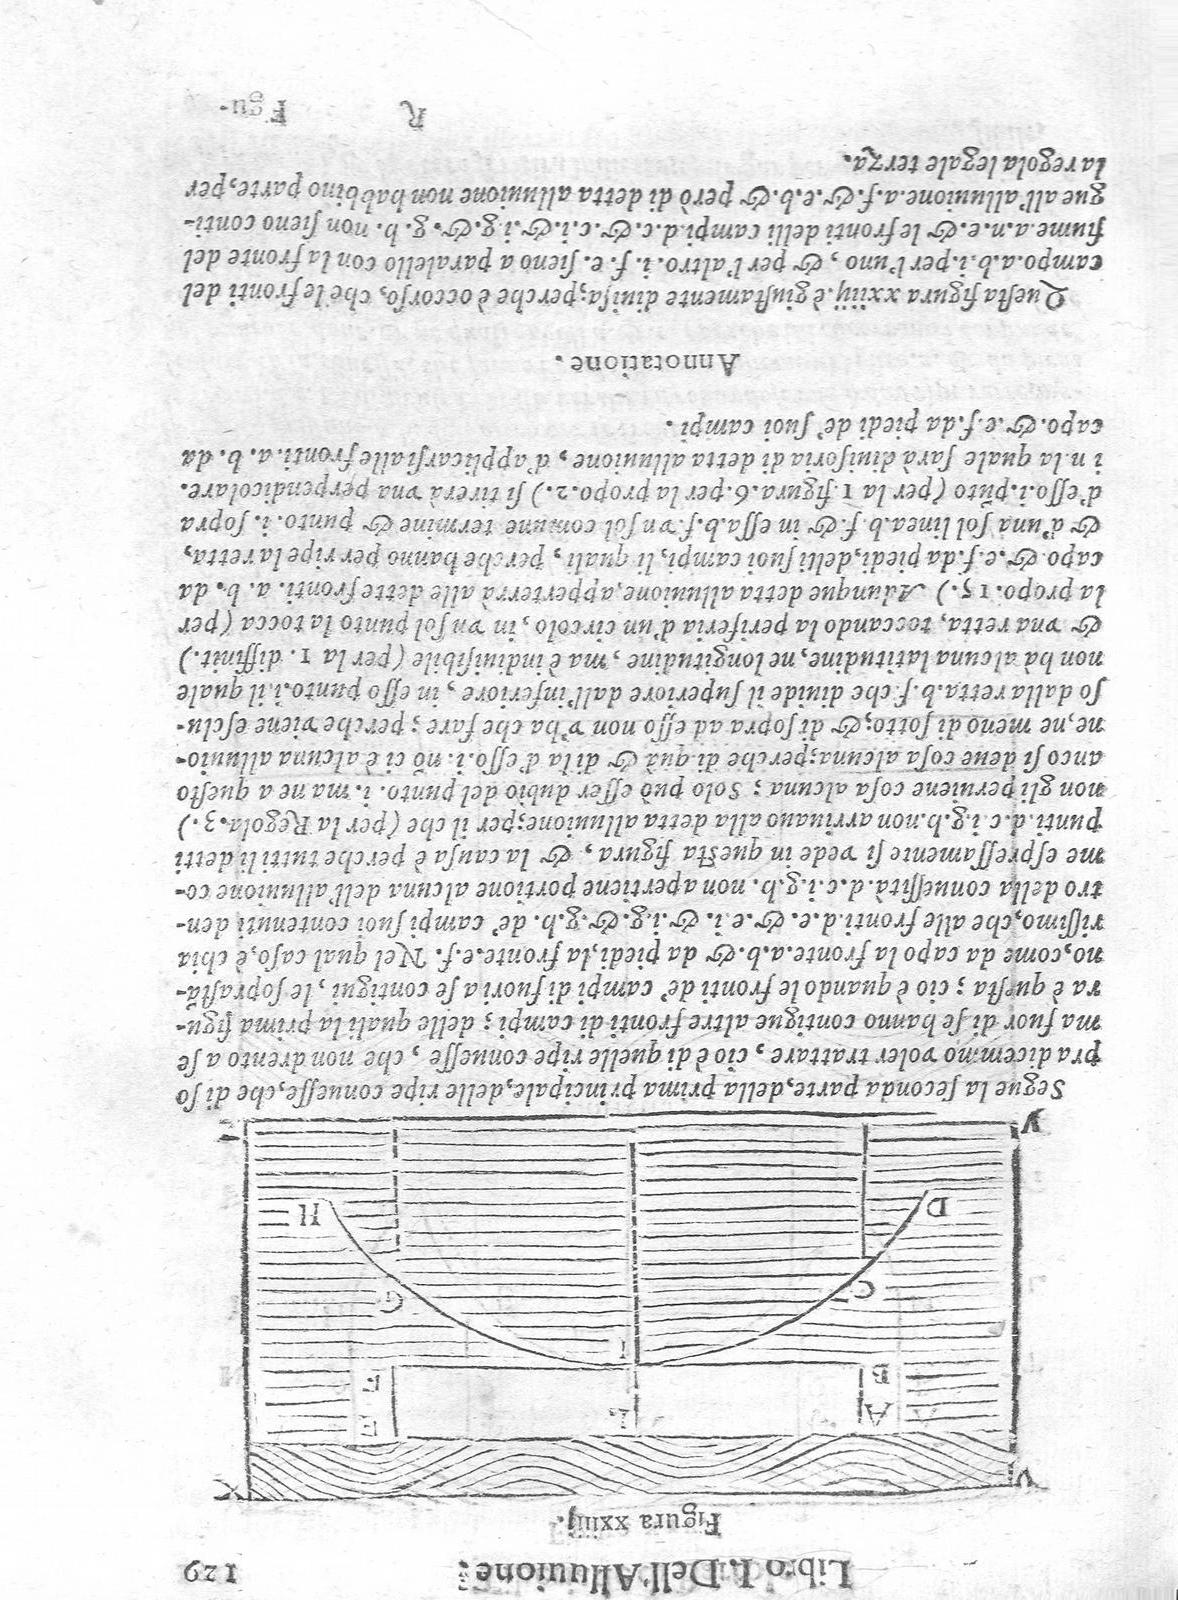 Libro I. Dell'Alluuione. 129
Figura xxiiij.
V X
A L E
B F
I
C G
D H
Segue la ſeconda parte, della prima principale, delle ripe conueſſe, che di ſo
pra dicemmo voler trattare, ciò è di quelle ripe conueſſe, che non drento a ſe
ma fuor di ſe hanno contigue altre fronti di campi; delle quali la prima figu-
ra è queſta; cio è quando le fronti de' campi di fuori a ſe contigui, le ſopraſtã-
no, come da capo la fronte.a.b.& da piedi, la fronte.e.f. Nel qual caſo, è chia
riſſimo, che alle fronti.d.e. & .e.i. & .i.g.&.g.b. de' campi ſuoi contenuti den-
tro della conueſſità.d.c.i.g.b. non apertiene portione alcuna dell'alluuione co-
me eſpreſſamente ſi vede in queſta figura, & la cauſa è perche tutti li detti
punti.d.c.i.g.b.non arriuano alla detta alluuione; per il che (per la Regola.3.)
non gli peruiene coſa alcuna; Solo può eſſer dubio del punto. i. ma ne a queſto
anco ſi deue coſa alcuna; perche di quà & di là d'eſſo.i. nõ ci è alcuna alluuio-
ne, ne meno di ſotto; & di ſopra ad eſſo non v'ha che fare; perche viene eſclu-
ſo dalla retta.b.f. che diuide il ſuperiore dall'inferiore, in eſſo punto.i.il quale
non hà alcuna latitudine, ne longitudine, ma è indiuiſibile (per la 1. diffinit.)
& vna retta, toccando la periferia d'un circolo, in vn ſol punto la tocca (per
la propo.15.) Adunque detta alluuione, apperterrà alle dette fronti. a. b. da
capo &.e.f.da piedi, delli ſuoi campi, li quali, perche hanno per ripe la retta,
& d'una ſol linea.b. f. & in eſſa.b.f. vn ſol comune termine & punto. i. ſopra
d'eſſo.i.pũto (per la 1.figura.6.per la propo.2.) ſi tirerà vna perpendicolare.
i n.la quale ſarà diuiſoria di detta alluuione, d'applicarſi alle fronti.a. b. da
capo.&.e.f.da piedi de' ſuoi campi.
Annotatione.
Queſta figura xxiiij.è giuſtamente diuiſa; perche è occorſo, che le fronti del
campo.a.b.i.per l'uno, & per l'altro.i. f. e. ſieno a paralello con la fronte del
fiume.a.n.e.& le fronti delli campi.d.c.&.c.i.&.i.g.&. g. b. non ſieno conti-
gue all'alluuione.a.f.&.e.b.& però di detta alluuione non habbino parte, per
la regola legale terza.
R Figu-